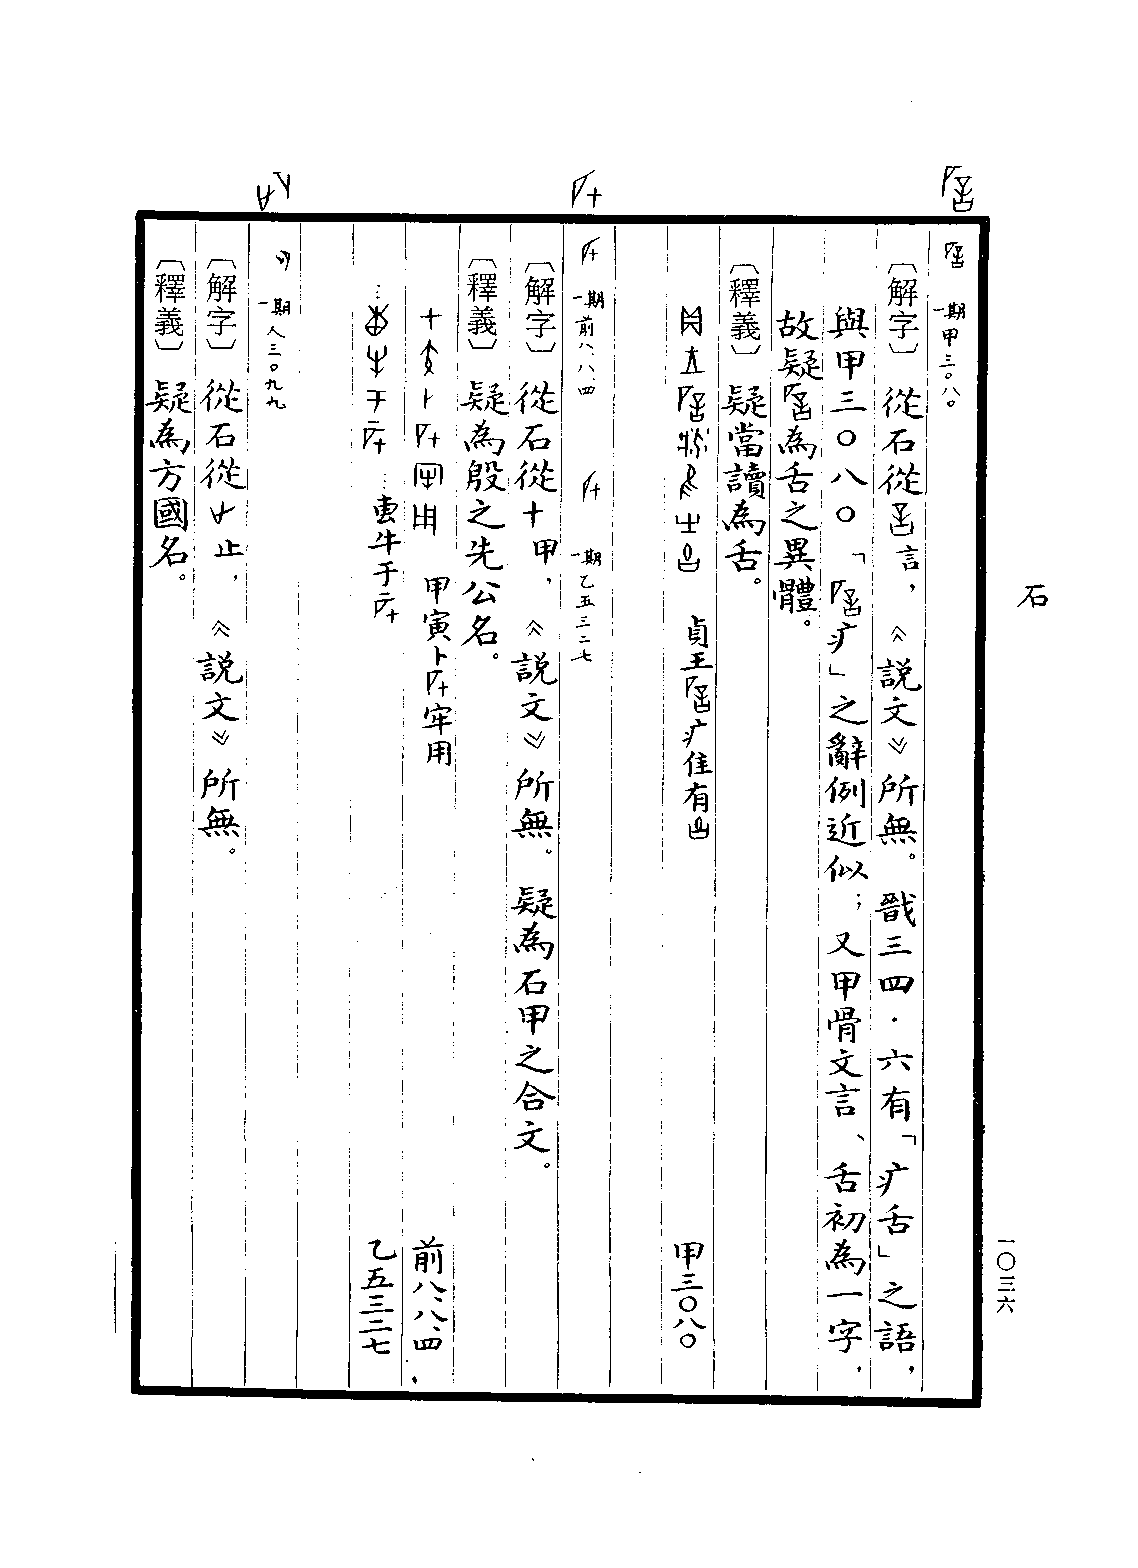 石
一〇三六
一期 甲三〇八〇
〔解字〕 從石從言，《說文》所無。戩三四·六有「疒舌」之語，
與甲三〇八〇「疒」之辭例近似；又甲骨文言、舌初為一字，
故疑為舌之異體。
〔釋義〕 疑當讀為舌。
貞王疒隹有 甲三〇八〇
一期 前八、八、四 一期 乙五三二七
〔解字〕 從石從十甲，《說文》所無。疑為石甲之合文。
〔釋義〕 疑為殷之先公名。
甲寅卜牢用 前八、八、四
…叀牛于 乙五三二七
一期 人三〇九九
〔解字〕 從石從止，《說文》所無。
〔釋義〕 疑為方國名。